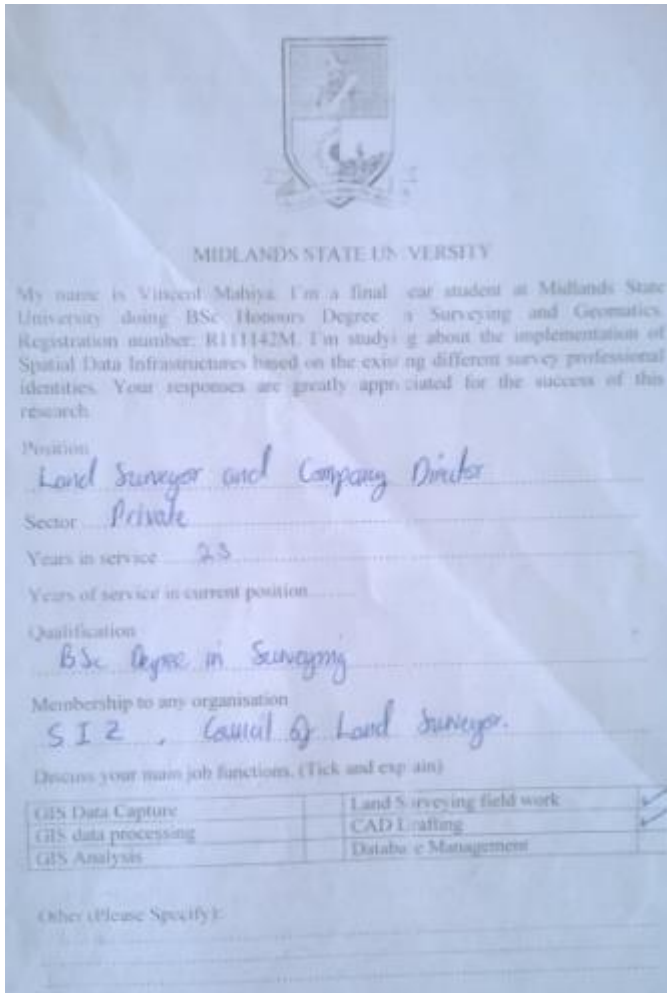 MIDLANDS STATE UN VERSITY
My name is Vincent Mahiya. I'm a final ear student at Midlands State
University doing BSc Honours Degree n Surveying and Geomatics.
Registration number: R111142M. I'm study g about the implementation of
Spatial Data Infrastructures based on the exist ng different survey professional
identities. Your responses are greatly appr ciated for the success of this
research.
Position
Land Surveyor and Company Director
Sector Private
Years in service
Years of service in current position
Qualification
BSc Degree in Surveying
Membership to any organisation
S I Z , Council of Land Surveyor.
Discuss your main job functions. (Tick and exp ain)
GIS Data Capture Land S rveying field work
GIS data processing CAD D afting
GIS Analysis Databa e Management
Other (Please Specify):